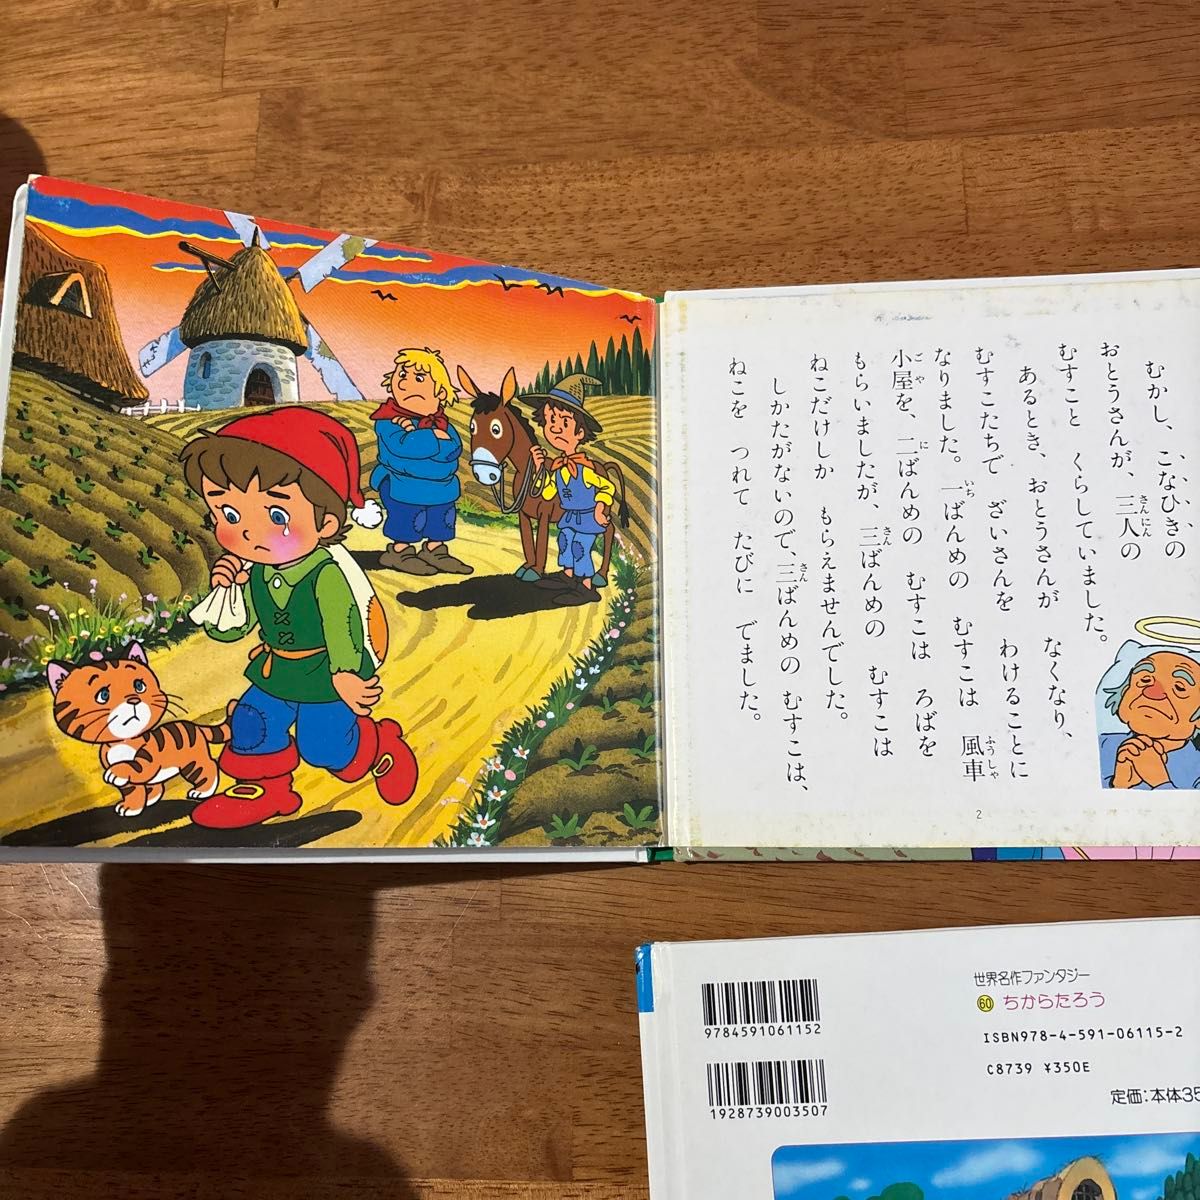 むかし、こなひきの
おとうさんが、三人の
むすこと くらしていました。
あるとき、おとうさんが なくなり、
むすこたちで ざいさんを わけることに
なりました。一ばんめの むすこは 風車
小屋を、二ばんめの むすこは ろばを
もらいましたが、三ばんめの むすこは
ねこだけしか もらえませんでした。
しかたがないので、三ばんめの むすこは、
ねこを つれて たびに でました。
さんにん
いち
ふうしゃ
こや
に
さん
さん
2
世界名作ファンタジー
60 ちからたろう
9784591061152
ISBN978-4-591-06115-2
C8739 ¥350E
1928739003507
定価:本体35